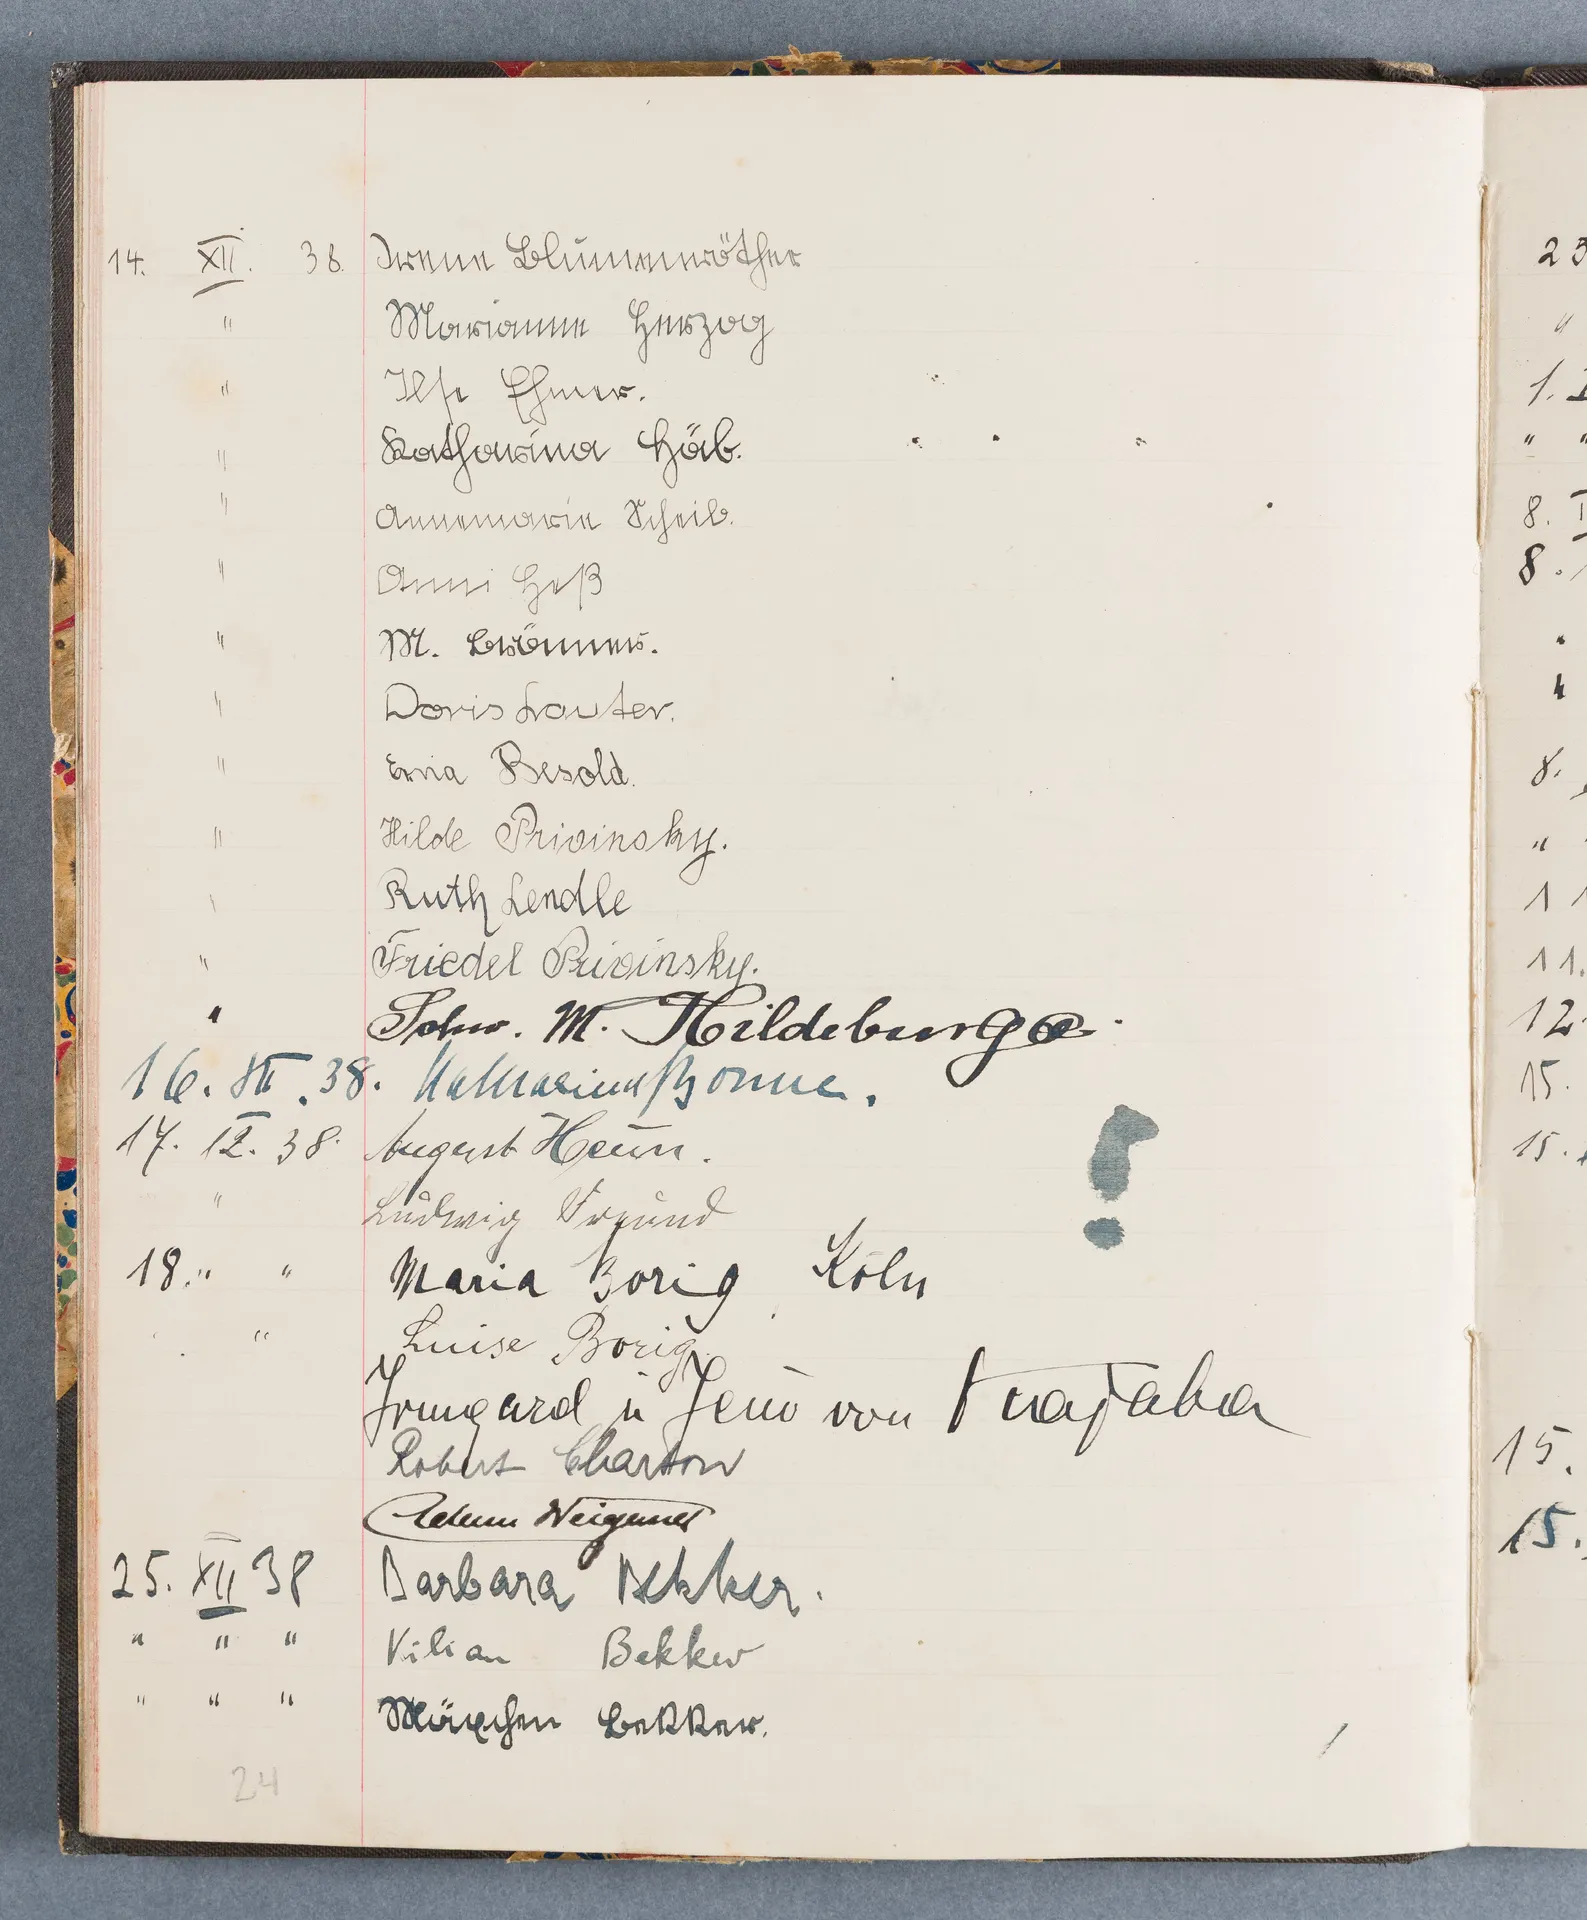 14. XII. 38. Irene Blumenröther
" Marianne Herzog
" Ilse Ehmer.
" Katharina Häb.
" Annemarie Scheib.
" Anni Heß
" M. Brönner.
" Doris Lauter.
" Erna Besold.
" Hilde Privinsky.
" Ruth Lendle
" Friedel Privinsky.
" Schw. M. Hildeburga.
16. XII. 38. Katharina Bonne.
17. 12. 38. August Heun.
" Ludwig Freund
18. " " Maria Borig Köln
" Luise Borig
Irmgard u Jenö von
Robert Charton
Adam
25. XII 38 Barbara Bekker.
" " " Kilian Bekker
" " " Bekker.
24
23
"
1.
" "
8.
8.
"
8.
"
11
11.
12
15.
15.
15.
15.